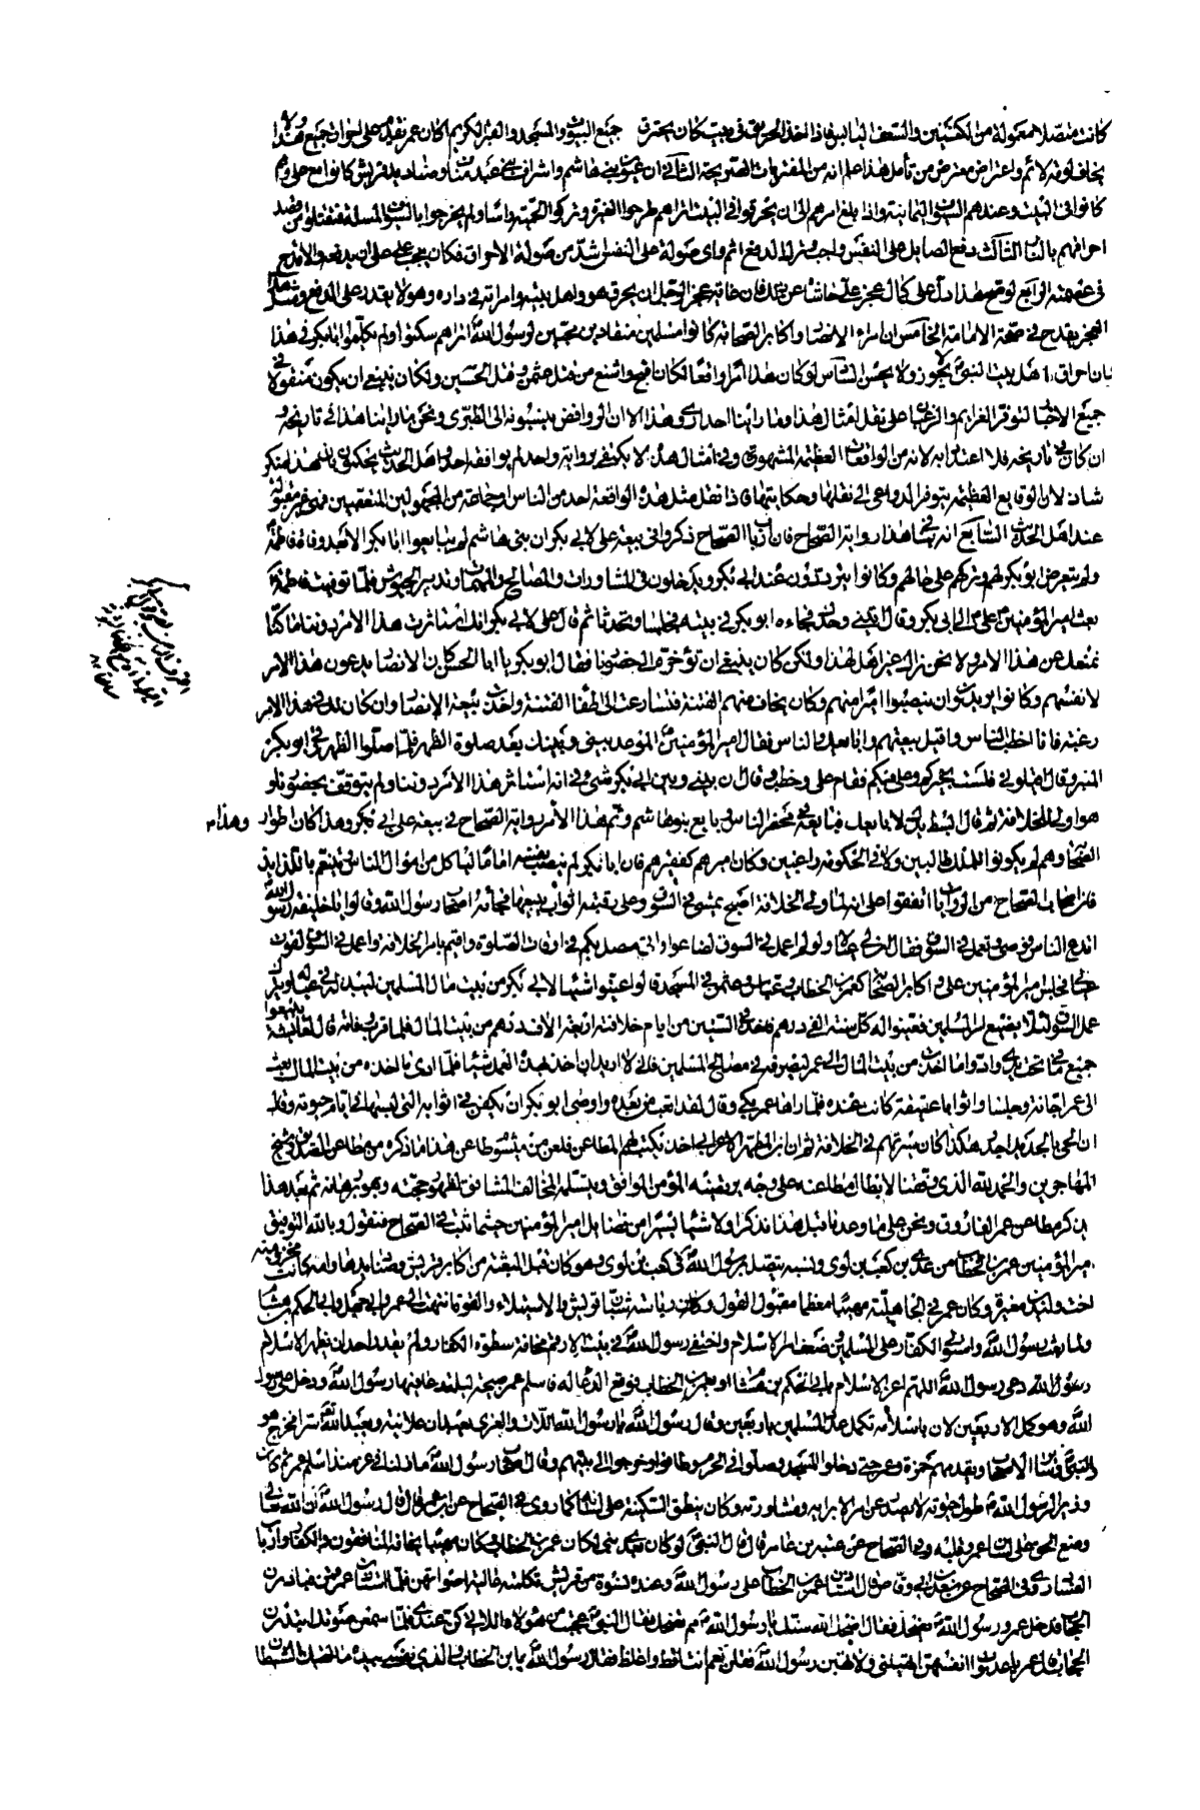 كانت متصلا معمولة من الكشتين والسعف اليابس فاذا اخذ الحريق في بيت كان يحترق جميع البيوت والمسجد والقبر الكريم اكان عمر يقدم على احراق جميع هذا
يخاف لومة لائم واعتراض معترض من تأمل هذا علم انه من المفتريات الصريحة الثاني ان عيون بني هاشم واشراف بني عبد مناف وصناديد قريش كانوا مع علي وهم
كانوا في البيت وعندهم السيوف اليمانية واذا بلغ امرهم الى ان يحرقوا في البيت تراهم طرحوا الغيرة وتركوا الحمية راسا ولم يخرجوا بالسيوف المسلة فيقتلوا من قصد
احراقهم بالنار الثالث دفع الصايل على النفس واجب وترك الدفع اثم واي صولة على النفس اشد من صولة الاحراق فكان يجب على علي ان يدفعه والا قدح
في عصمته الرابع لو صح هذا دل على كمال عجز علي حاشاه عن ذلك فان غاية عجز الرجل ان يحرق هو واهل بيته وامراته في داره وهو لا يقدر على الدفع ومثل هذا
العجز يقدح في صحة الامامة الخامس ان امراء الانصار واكابر الصحابة كانوا مسلمين منقادين محبين لرسول الله اتراهم سكتوا ولم يكلموا ابا بكر في هذا
بان احراق اهل بيت النبي لا يجوز ولا يحسن السادس لو كان هذا امرا واقعا لكان اقبح واشنع من قتل عثمن وقتل الحسين ولكان ينبغي ان يكون منقولا في
جميع الاخبار لتوفر العزايم والرغبات على نقل امثال هذا وما راينا احدا روى هذا الا ان الروافض ينسبونه الى الطبري ونحن ما راينا هذا في تاريخه و
ان كان في تاريخه فلا اعتداد به لانه من الواقعات العظيمة المشهورة وفي امثال هذه لا يكتفى برواية واحد لم يوافقه احد واهل الحديث يحكمون بان هذا منكر
شاذ لان الوقايع العظيمة يتوفر الدواعي الى نقلها وحكايتها فاذا نقل مثل هذه الواقعة احد من الناس او جماعة من المجهولين المتعصبين فهي غير مقبولة
عند اهل الحديث السابع انه ينافي هذا رواية الصحاح فان ارباب الصحاح ذكروا في بيعة علي لابي بكر ان بني هاشم لم يبايعوا ابا بكر الا بعد وفاة فاطمة
ولم يتعرض ابو بكر لهم وتركهم على حالهم وكانوا يترددون عند ابي بكر ويدخلون في المشاورات والمصالح والمهمات وتدبير الجيوش فلما توفيت فاطمة
بعث امير المؤمنين علي الى ابي بكر وقال ايتني وحدك فجاءه ابو بكر في بيته فجلسا وتحدثا ثم قال علي لابي بكر انك استاثرت هذا الامر دوننا ما كنا
نمنعك عن هذا الامر ولا نحن نراك غير اهل لهذا ولكن كان ينبغي ان تؤخره الى حضورنا فقال ابو بكر يا ابا الحسن كان الانصار يدعون هذا الامر
لانفسهم وكانوا يريدون ان ينصبوا اميرا منهم وكان يخاف منهم الفتنة فتسارعت الى اطفاء الفتنة واخذت بيعة الانصار وان كان لك في هذا الامر
رغبة فانا اخطب الناس واقيل بيعتهم وابايعك والناس فقال امير المؤمنين الموعد بيني وبينك بعد صلوة الظهر فلما صلوا الظهر رقى ابو بكر
المنبر وقال اقيلوني فلست بخيركم وعلي فيكم فقام علي وخطب وقال ان بيني وبين ابي بكر شيء في انه استاثر هذا الامر دوننا ولم يتوقف بحضورنا و
هو اولى للخلافة ثم قال ابسط يدك لابايعك فبايعه في محضر الناس وبايع بنو هاشم وتم هذا الامر رواية الصحاح في بيعة علي ابي بكر وهذا كان اطوار وهذا
الصحابة وهم لم يكونوا للملك طالبين ولا في الحكومة راغبين وكان امرهم كغيرهم فان ابا بكر لم ينصب نفسه اماما لياكل من اموال الناس ويتنعم باللذايذ
فان اصحاب الصحاح من الروايات اتفقوا على انه لما ولي الخلافة اصبح يمشي في السوق وعلى رقبته اثواب يبيعها فجاءه اصحاب رسول الله وقالوا يا خليفة رسول الله
اندع الناس فوضى وتعمل في السوق فقال الرجل عيالا ولو لم اعمل في السوق لضاعوا واني مصل بكم في اوقات الصلوة واقيم بامر الخلافة واعمل في السوق لقوت
عيالي فجلس امير المؤمنين علي واكابر الصحابة كعمر بن الخطاب وعباس وعثمن في المسجد قالوا عينوا شيئا لابي بكر من بيت مال المسلمين ليبذله في عياله ويترك
عمل السوق لئلا يضيع امر المسلمين فعينوا له كل سنة الف درهم فاخذ في السنتين من ايام خلافته اربعة الاف درهم من بيت المال فلما قرب وفاته قال لعايشة
جميع ما في تحت يدي وادوا ما اخذت من بيت المال الى عمر ليصرفه في مصالح المسلمين فاني لا اريد ان اخذ بهذا العمل شيئا فلما ادى ما اخذه من بيت المال بعث
الى عمر اجانة وحلسا واثوابا عتيقة كانت عنده فلما راها عمر بكى وقال لقد اتعب من بعده واوصى ابو بكر ان يكفن في اثوابه التي لبسها في ايام حيوته وقال
ان الحي بالجديد اجدر هكذا كان سيرتهم في الخلافة ثم ان ابن المطهر الاعرابي اخذ يكتب لهم المطاعن فلعن من بثوطا عن هذا ما ذكره من مطاعن الصديق شيخ
المهاجرين والحمد لله الذي وفقنا لابطال مطاعنه على وجه يرتضيه المؤمن الموافق ويسلمه المخالف المشاقق لظهور حجته وبهور برهانه ثم بعد هذا
يذكر مطاعن عمر الفاروق ونحن على ما وعدنا قبل هذا نذكر اولا شيئا يسيرا من فضايل امير المؤمنين حسبما ثبت في الصحاح فنقول وبالله التوفيق
امير المؤمنين عمر بن الخطاب من عدي بن كعب بن لوي ونسبه يتصل برسول الله في كعب بن لوي وهو كان قبل البعثة من اكابر قريش وصناديدها وامه كانت مخزومية
اخت وليد بن مغيرة وكان عمر في الجاهلية مهيبا معظما مقبول القول وكان رياسة شبان قريش والاستيلاء والقوة انتهت الى عمر وابي جهل وابي الحكم بن هشام
ولما بعث رسول الله واستولى الكفار على المسلمين ضعف امر الاسلام واختفى رسول الله في بيت الارقم مخافة سطوة الكفار ولم يقدر احد ان يظهر الاسلام
رسول الله دعى رسول الله اللهم اعز الاسلام بابي الحكم بن هشام او بعمر بن الخطاب فوقع الدعاء له فاسلم عمر صبيحة ليلة دعا فيها رسول الله ودخل على رسول
الله وهو كمل الاربعين لان باسلامه تكمل عدد المسلمين باربعين وقال رسول الله يا رسول الله اللات والعزى يعبدان علانية ويعبد الله سرا فخرج هو
والنبي وساير الاصحاب ويقدمهم حمزة وعمر حتى دخلوا المسجد وصلوا في الحرم وطافوا وخرجوا الى بيتهم وقال اصحاب رسول الله ما زلنا في عز منذ اسلم عمر ثم كان
وزير الرسول الله طول حيوته لا يصدر عن امر الا برايه ومشاورته وكان ينطق السكينة على لسانه كما روى في الصحاح عن ابن عمر قال قال رسول الله ان الله تعالى
وضع الحق على لسان عمر وقلبه وفي الصحاح عن عتبة بن عامر قال قال النبي لو كان بعدي نبي لكان عمر بن الخطاب وكان مهيبا يخافه المنافقون والكفار وارباب
الفساد روى في الصحاح عن سعد بن ابي وقاص قال استاذن عمر بن الخطاب على رسول الله وعنده نسوة من قريش يكلمنه عالية اصواتهن فلما استاذن عمر قمن فبادرن
الحجاب فدخل عمر ورسول الله يضحك فقال اضحك الله سنك يا رسول الله مم تضحك فقال النبي عجبت من هؤلاء اللاتي كن عندي فلما سمعن صوتك ابتدرن
الحجاب قال عمر يا عدوات انفسهن اتهبنني ولا تهبن رسول الله فقلن نعم انت افظ واغلظ فقال رسول الله يا بن الخطاب والذي نفسي بيده ما لقيك الشيطان